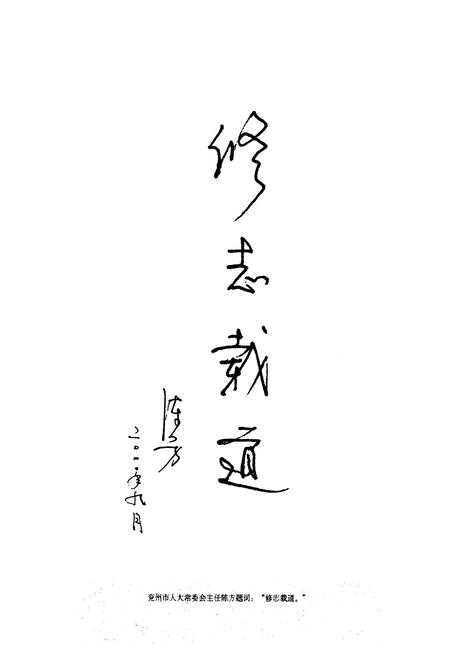 修志载道
陈方
二〇一〇年九月
兖州市人大常委会主任陈方题词：“修志载道。”